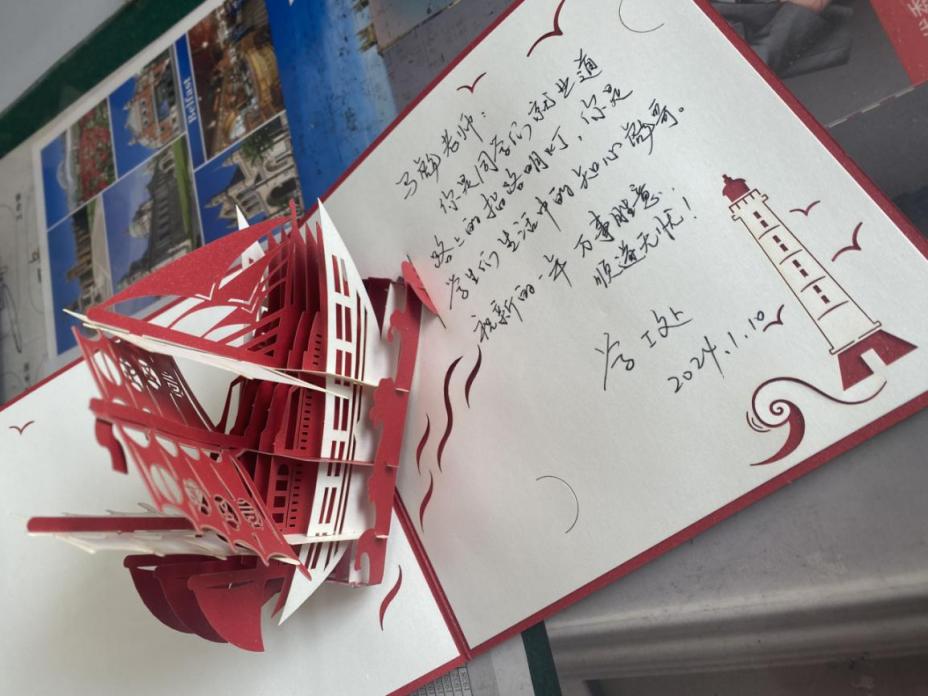 马静老师：
你是同学们就业道
路上的指路明灯，你是
学生们生活中的知心静哥。
祝新的一年 万事胜意
顺遂无忧！
学工处
2024.1.10
Belfast